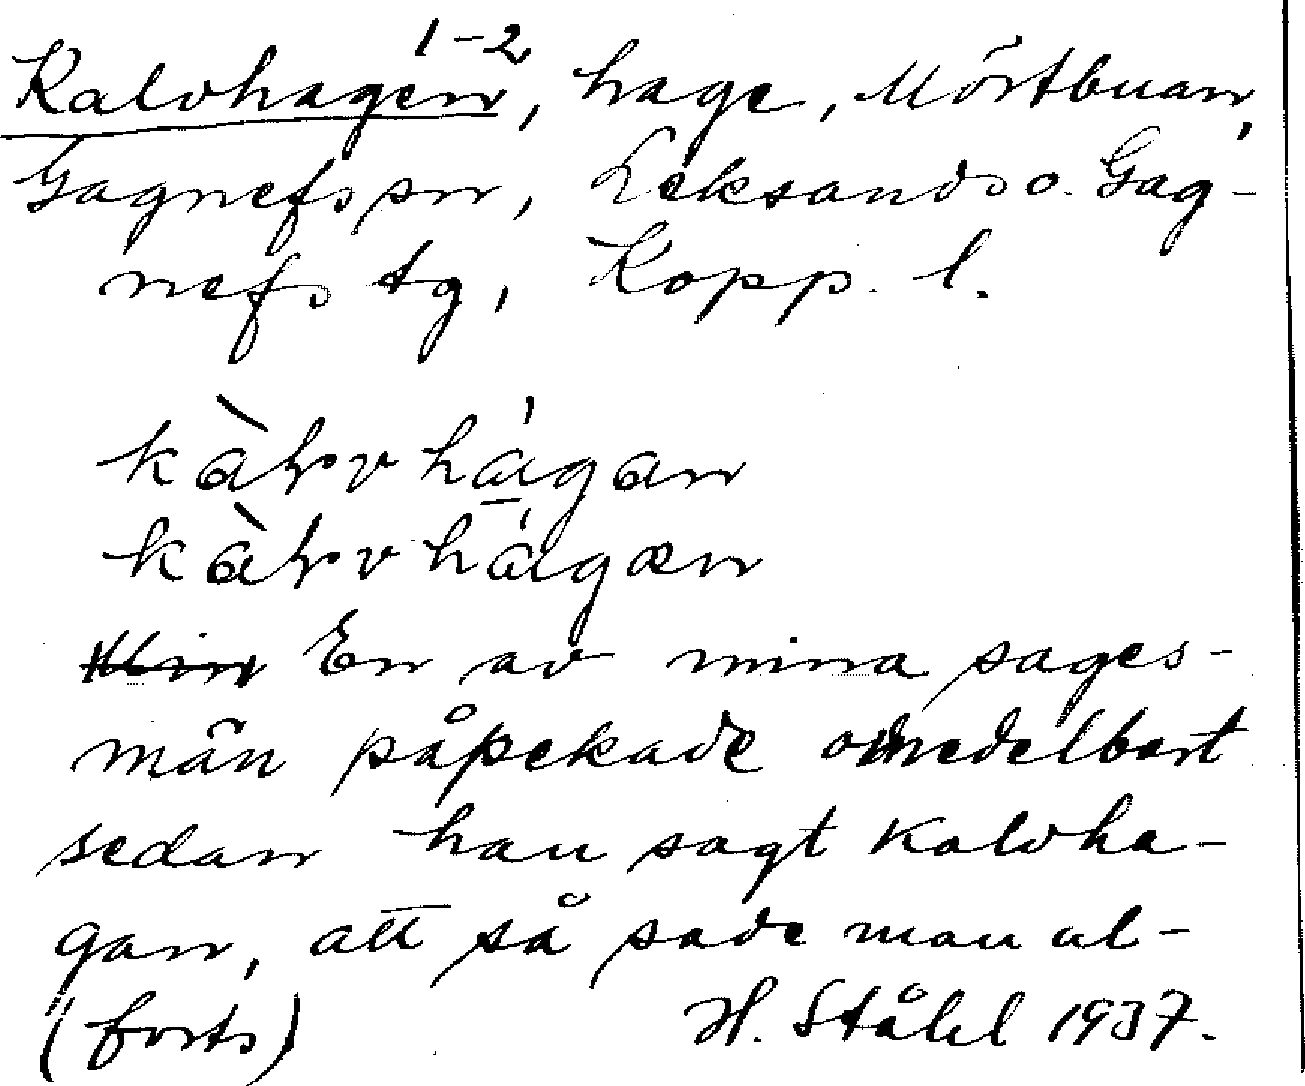 1-2
Kalvhagen, hage, Mörtbuan,
Gagnefs sn, Leksands o. Gag-
nefs tg, Kopp. l.
kàłvhágan
kàłvhágæn
En av mina sages-
män påpekade omedelbart
sedan han sagt kalvha-
gan, att så sade man al-
(forts) H. Ståhl 1937.